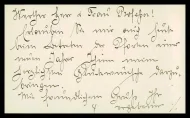 Werther Herr u. Frau Professor!
Erlauben Sie mir auch heute
beim
neuen Jahre Ihnen meine
herzlichsten Glückwünsche darzu-
bringen.
Mit freundlichem Gruß Ihr
ergebener